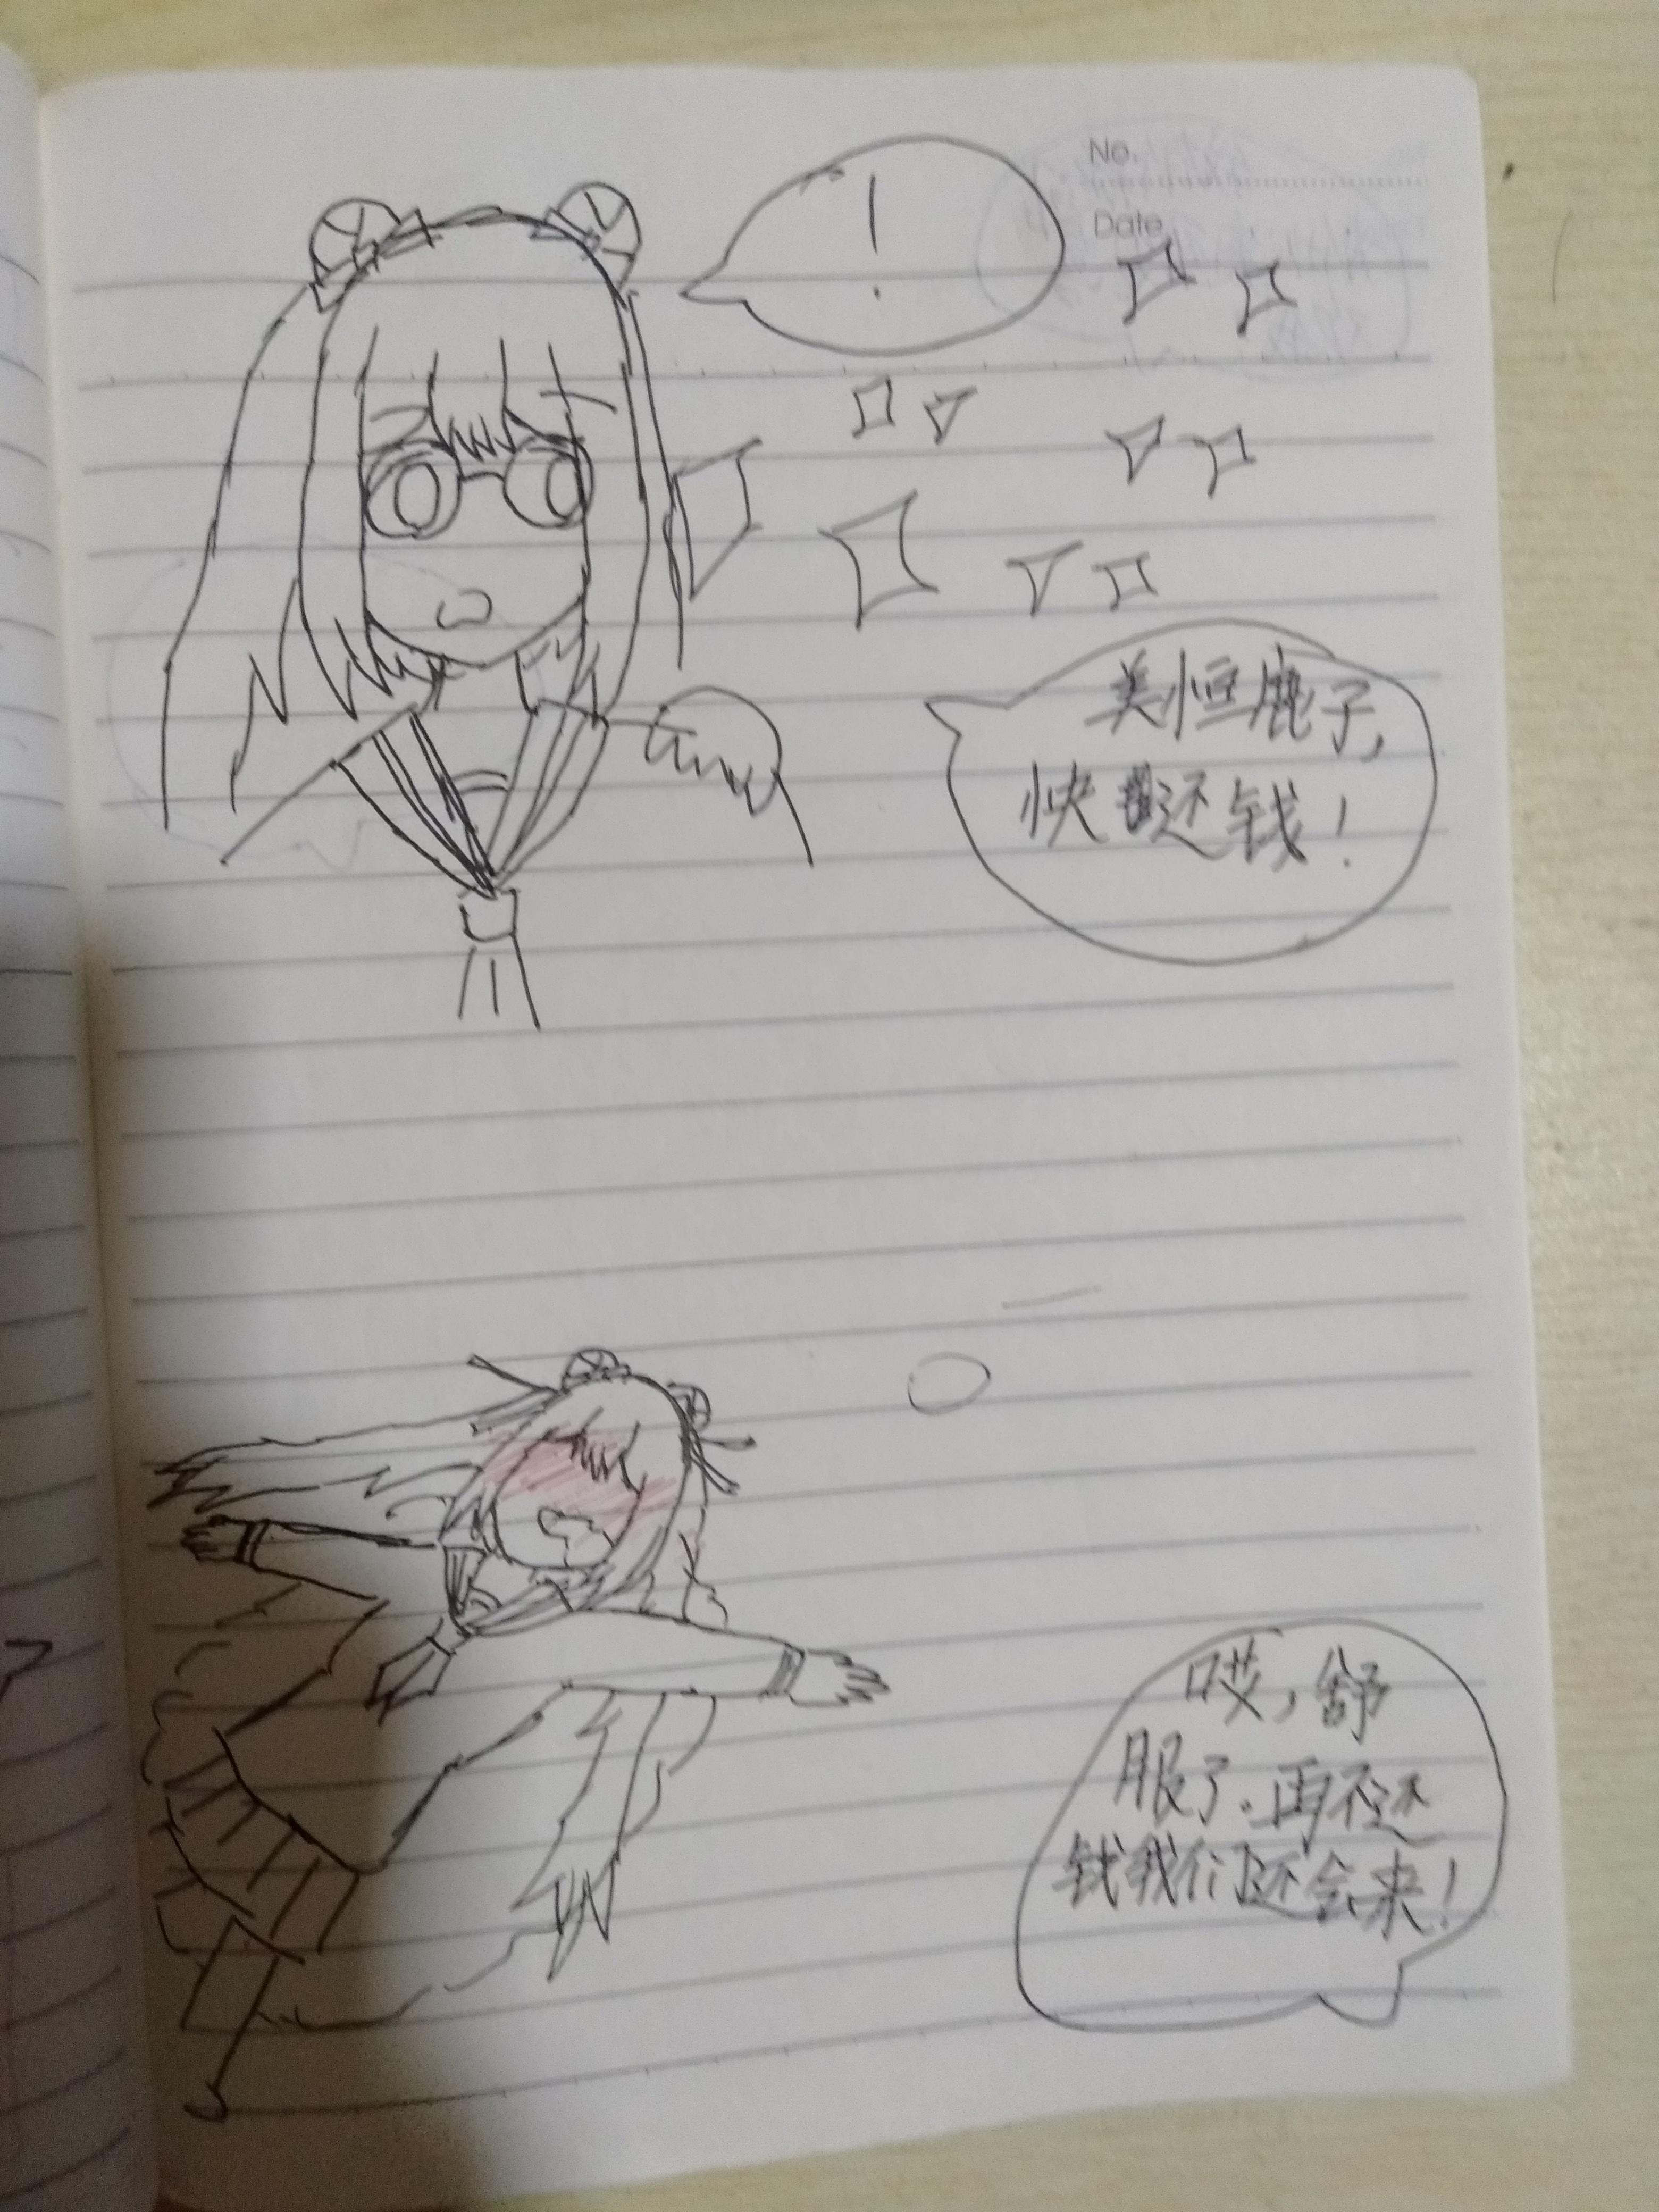 No.
Date
!
美恒鹿子,
快还钱!
哎,舒
服了.再不还
钱我们还会来!